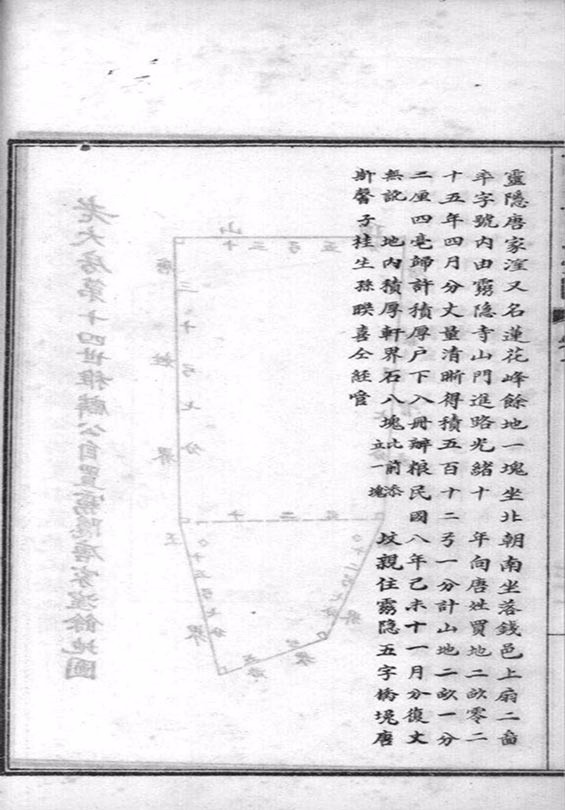 靈隱唐家漥又名蓮花峰餘地一塊坐北朝南坐落錢邑上扇二啚
字號内由靈隐寺山門進路光緒十 年向唐姓買地二畝零二
十五年四月分丈量清晰得積五百十二弓一分計山地二畝一分
二厘四毫歸許積厚户下入冊辦粮民國八年己未十一月分復丈
無訛 地内積厚軒界石八塊此前添立一塊 坟親住靈隐五字橋堍唐
馨子桂生孫聧喜仝經官
老大房第十四世維麟公自置靈隐唐家漥餘地圖